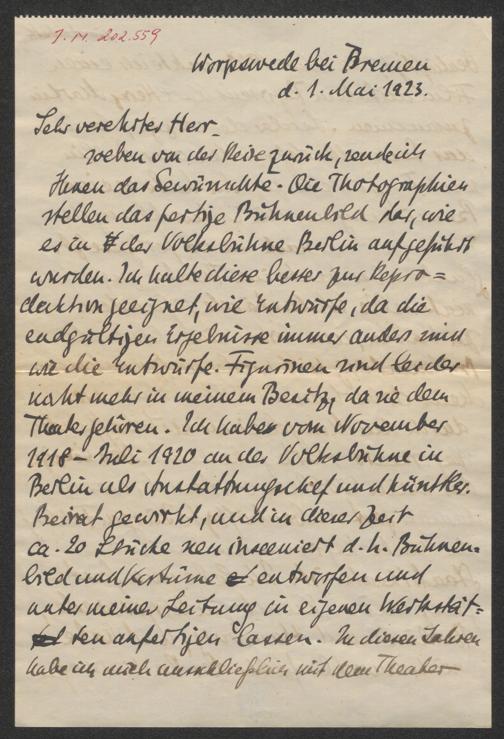 J. N. 202.559
Worpswede bei Bremen
d. 1. Mai 1923.
Sehr verehrter Herr.
soeben von der Reise zurück, sende ich
Ihnen das Gewünschte. Die Photographien
stellen das fertige Bühnenbild dar, wie
es in der Volksbühne Berlin aufgeführt
wurden. Ich halte diese besser zur Repro=
duktion geeignet, wie Entwürfe, da die
endgültigen Ergebnisse immer anders sind
wie die Entwürfe. Figurinen sind leider
nicht mehr in meinem Besitz, da sie dem
Theater gehören. Ich habe vom November
1918 - Juli 1920 an der Volksbühne in
Berlin als Ausstattungschef und künstler.
Beirat gewirkt, und in dieser Zeit
ca. 20 Stücke neu insceniert d. h. Bühnen=
bild und Kostüme entworfen und
unter meiner Leitung in eigenen Werkstät=
ten anfertigen lassen. In diesen Jahren
habe ich mich ausschließlich mit dem Theater